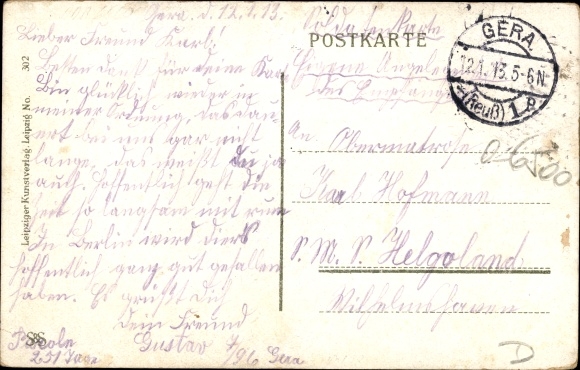 Gera. d. 12.1.13.
Lieber Freund Karl!
Besten Dank für deine Kar
Bin glücklich wieder in
meiner Ordnung, das dau-
ert bei uns gar nicht
lange, das weißt Du ja
auch. Hoffentlich geht die
Zeit so langsam mit rum
In Berlin wird
hoffentlich ganz gut gefallen
haben. Es grüßt Dich
Dein Freund
Gustav
Parole
251 Tage
/96 Gera
Leipziger Kunstverlag. Leipzig No. 302
S&S
Soldatenkarte
POSTKARTE
Eigene Angele
des Empfäng
GERA.
12.1.13.5-6N.
*(Reuß) 1 B
An Obermatrose
Karl Hofmann
S. M. S. Helgoland
Wilhelmshaven
D